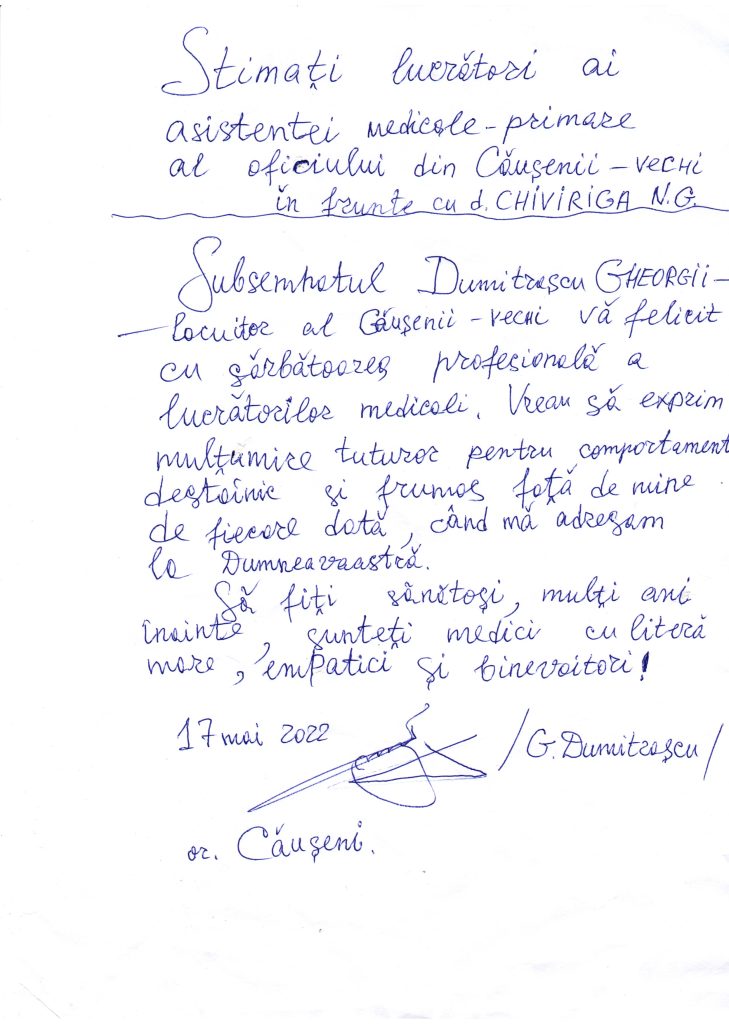 Stimați lucrători ai
asistenței medicale-primare
al oficiului din Căușenii-vechi
în frunte cu d. CHIVIRIGA N.G.
Subsemnatul Dumitrașcu GHEORGII-
-locuitor al Căușenii-vechi vă felicit
cu sărbătoarea profesională a
lucrătorilor medicali. Vreau să exprim
mulțumire tuturor pentru comportament
destoinic și frumos față de mine
de fiecare dată, când mă adresam
la Dumneavaastră.
Să fiți sănătoși, mulți ani
înainte, sunteți medici cu literă
mare, empatici și binevoitori!
17 mai 2022 /G. Dumitrașcu/
or. Căușeni.